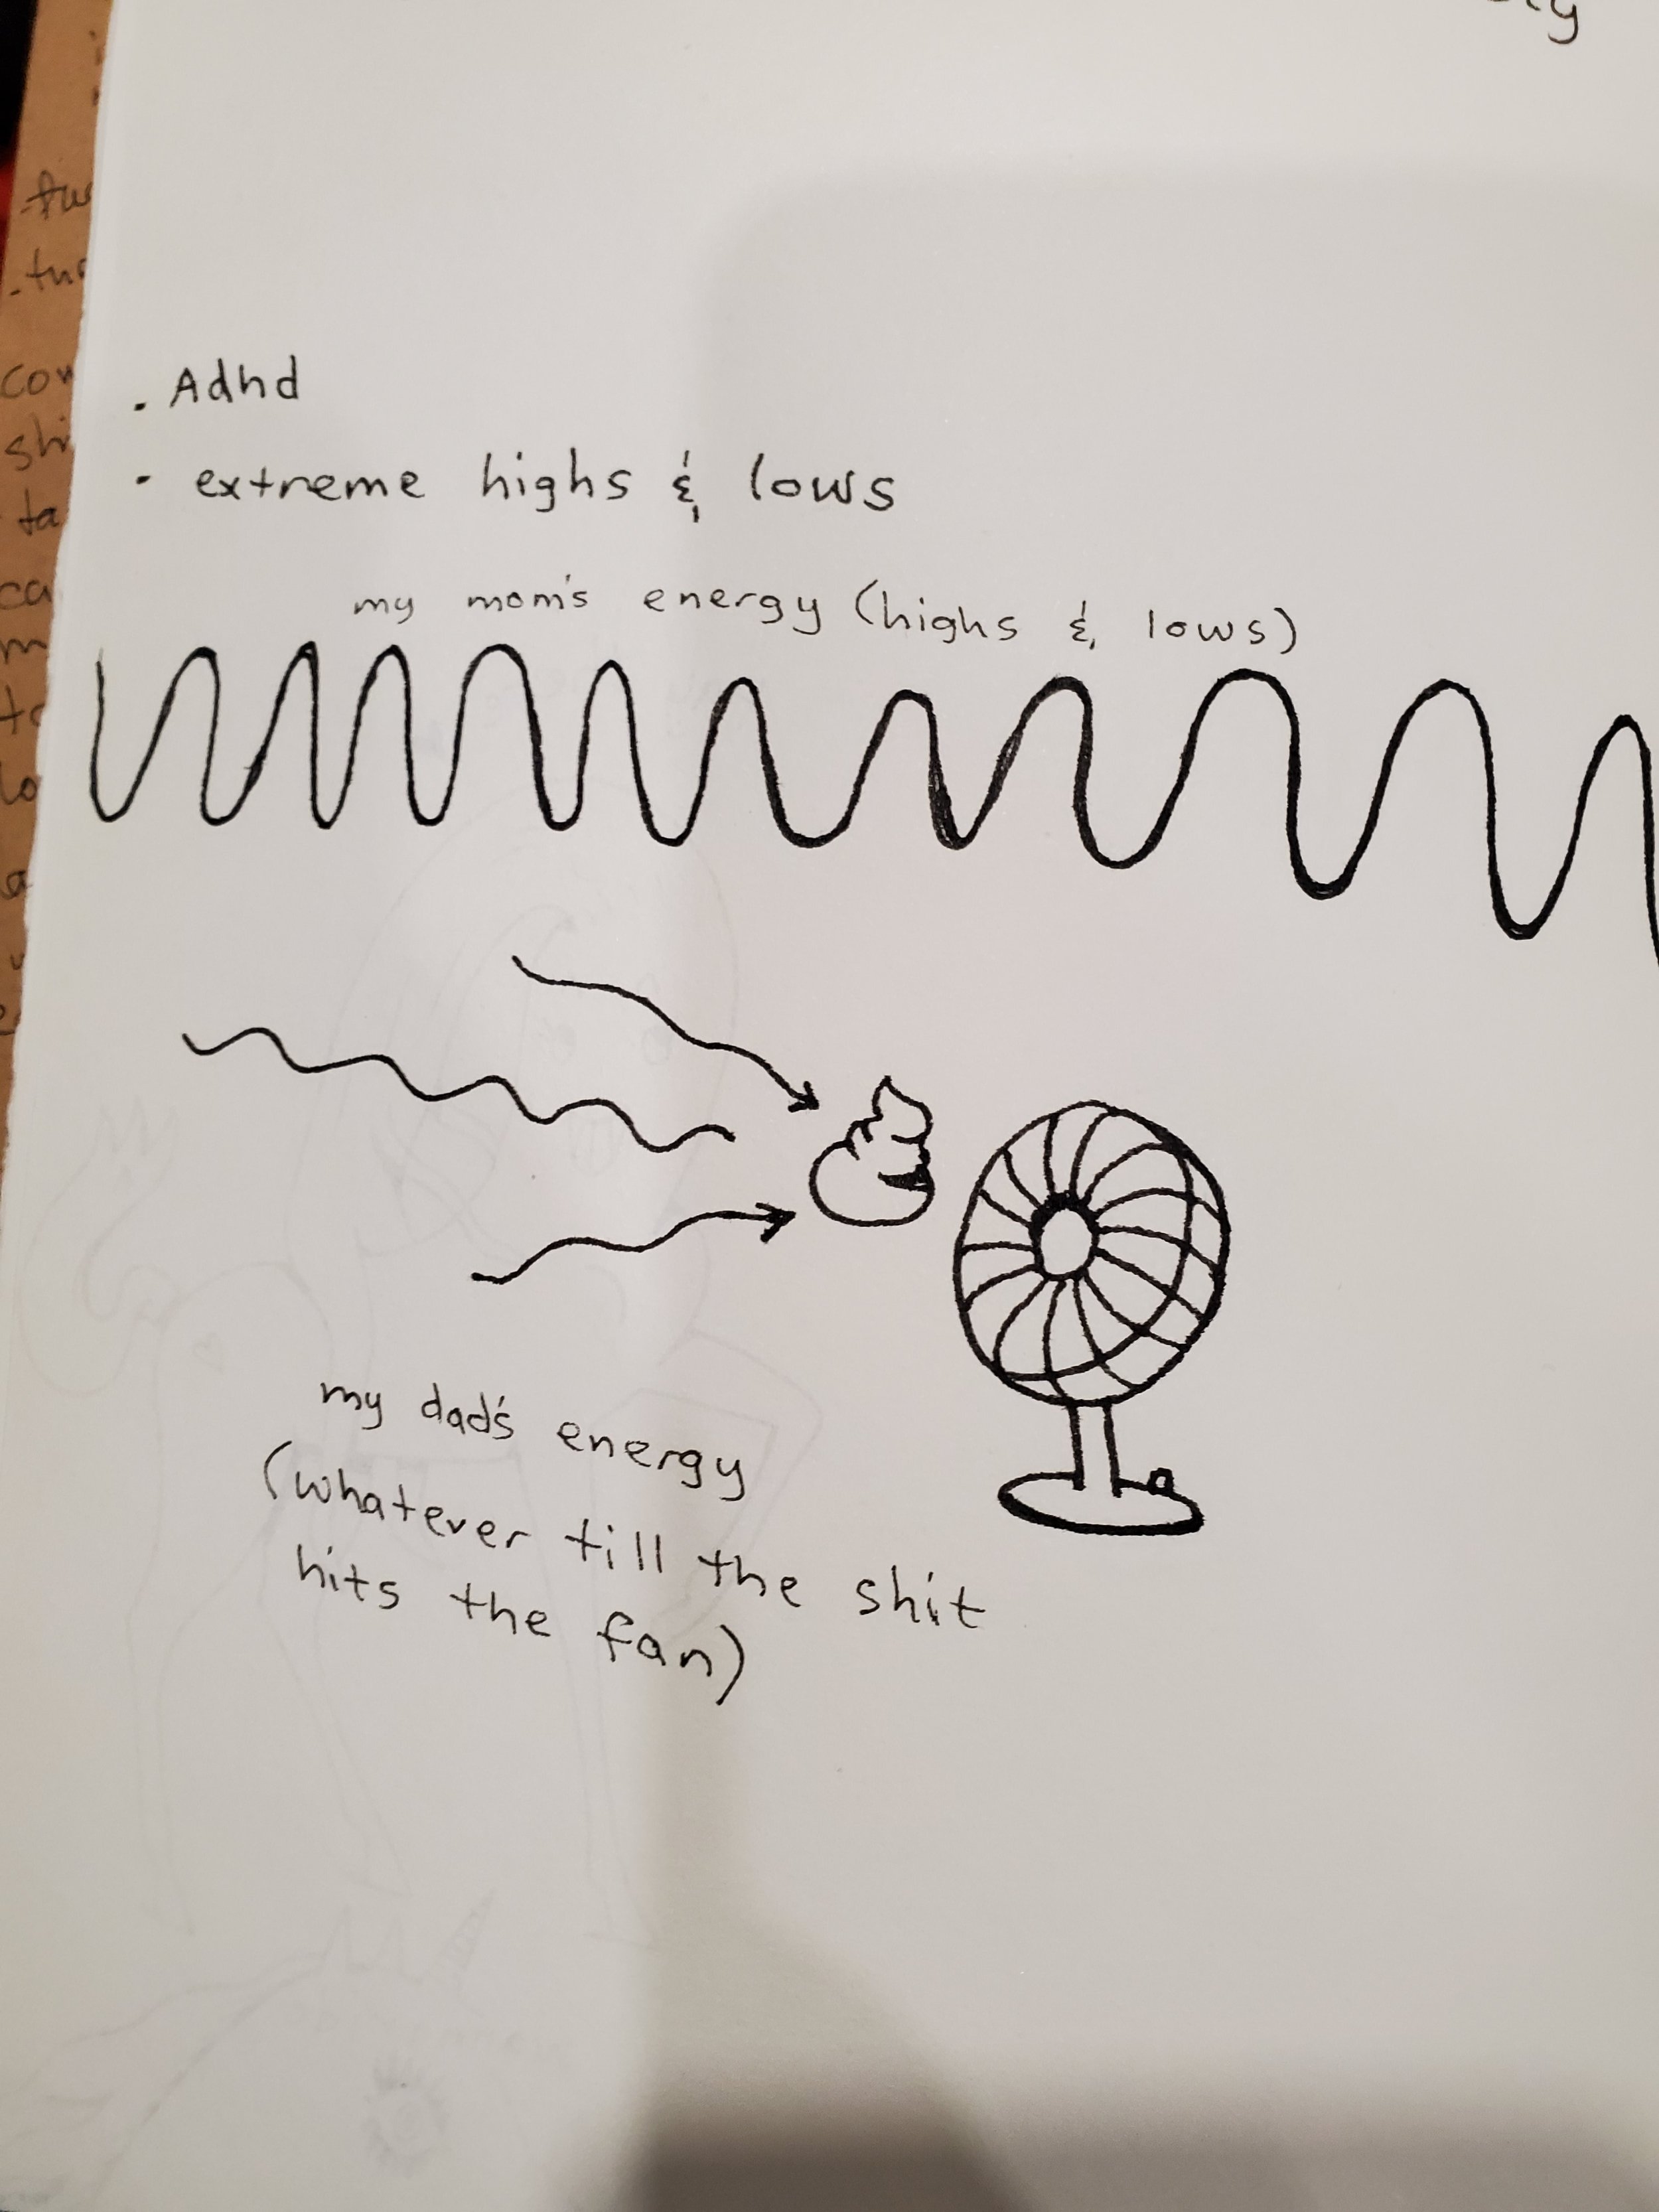 . Adhd
· extreme highs & lows
my mom's energy (highs & lows)
my dad's energy
(whatever till the shit
hits the fan)